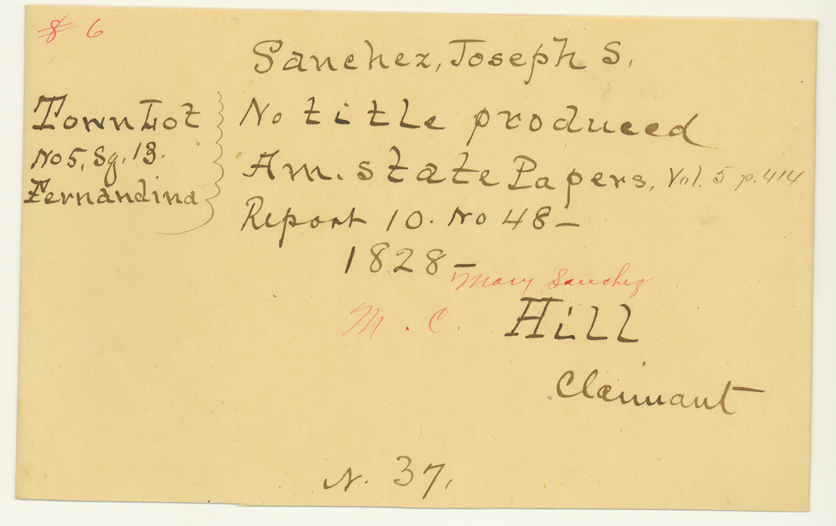 # 6
Sanchez, Joseph S.
Town Lot
No 5, Sq. 13.
Fernandina
No title produced
Am. state Papers, Vol. 5 p. 414
Report 10. No 48–
1828–
Mary Sanchez
M. C. Hill
Claimant
N. 37.